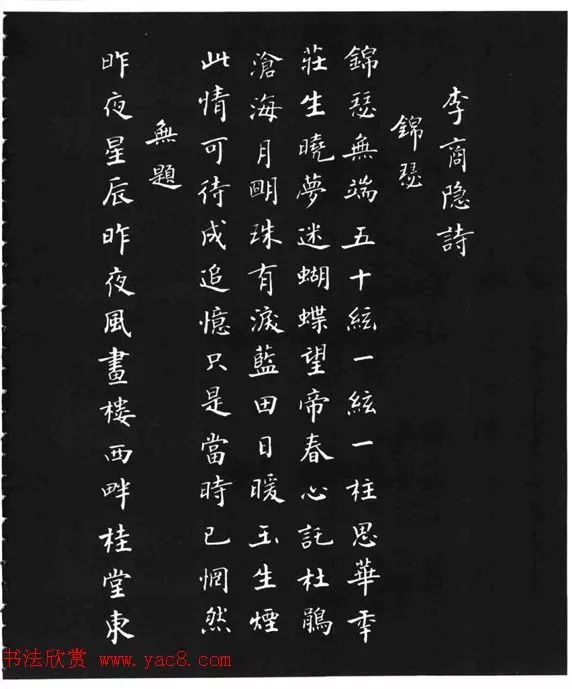 李商隐詩
錦瑟
錦瑟無端五十絃一絃一柱思華年
莊生曉夢迷蝴蝶望帝春心託杜鵑
滄海月朙珠有淚藍田日暖玉生煙
此情可待成追憶只是當時已惘然
無題
昨夜星辰昨夜風畫楼西畔桂堂東
书法欣赏 www.yac8.com